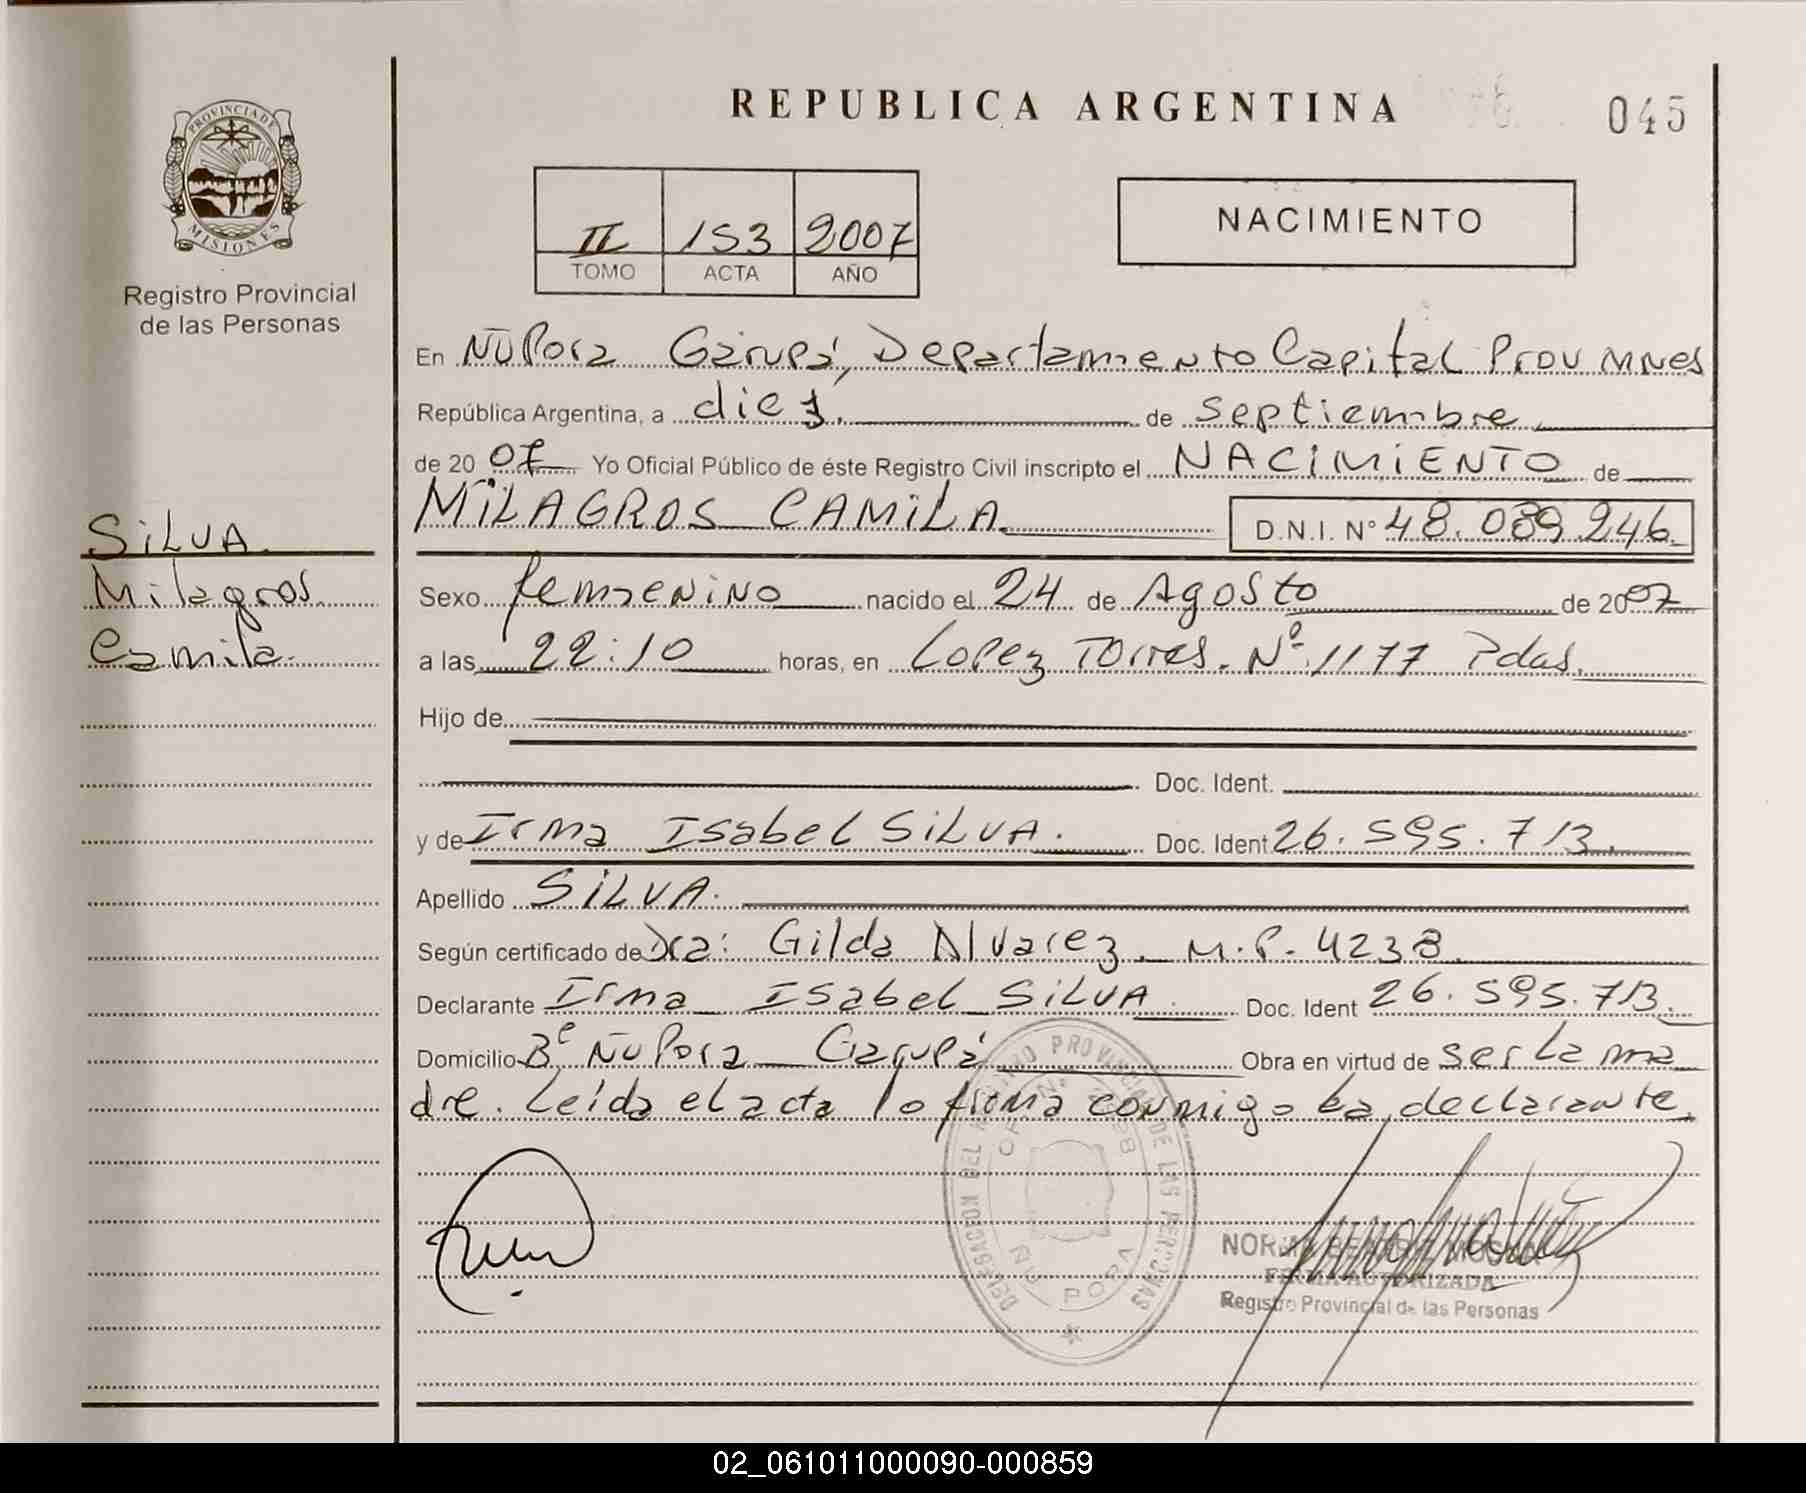 PROVINCIA DE
MISIONES
Registro Provincial
de las Personas
REPUBLICA ARGENTINA
045
II 153 2007
TOMO ACTA AÑO
NACIMIENTO
En Ñu Pora Garupá, Departamento Capital Prov Mnes
República Argentina, a diez. de septiembre
de 20 07 Yo Oficial Público de éste Registro Civil inscripto el NACIMIENTO de
MILAGROS CAMILA. D.N.I. N° 48.089.246.
SILVA.
Milagros
Camila.
Sexo femenino nacido el 24 de Agosto de 2007
a las 22:10 horas, en Lopez Torres. Nº 1177 Pdas.
Hijo de
Doc. Ident.
y de Irma Isabel SILVA. Doc. Ident 26.595.713.
Apellido SILVA.
Según certificado de Dra: Gilda Alvarez. M.P. 4238.
Declarante Irma Isabel SILVA. Doc. Ident 26.595.713.
Domicilio Bº Ñu Pora Garupá Obra en virtud de ser la ma
dre. Leída el acta lo firma conmigo la declarante.
DELEGACION DEL REGISTRO PROVINCIAL DE LAS PERSONAS
ÑU PORA
NORMA
FIRMA AUTORIZADA
Registro Provincial de las Personas
02_061011000090-000859